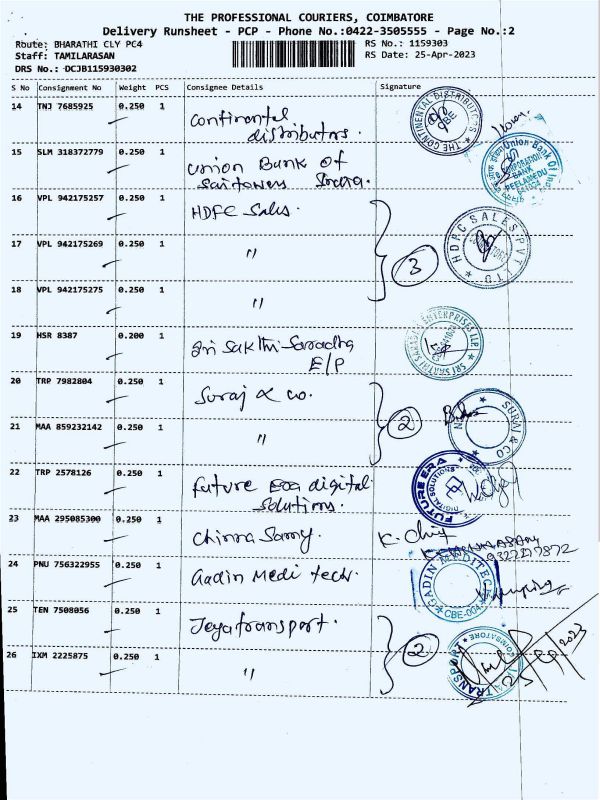 THE PROFESSIONAL COURIERS, COIMBATORE
Delivery Runsheet - PCP - Phone No.:0422-3505555 - Page No.:2
Route: BHARATHI CLY PC4 RS No.: 1159303
Staff: TAMILARASAN RS Date: 25-Apr-2023
DRS No.: DCJB115930302
S No Consignment No Weight PCS Consignee Details Signature
14 TNJ 7685925 0.250 1 Continental
distributors.
THE CONTINENTAL DISTRIBUTORS
15 SLM 318372779 0.250 1 Union Bank of
India.
Union Bank Of India
CORPORATION BANK
PEELAMEDU
16 VPL 942175257 0.250 1 HDFC Sales.
17 VPL 942175269 0.250 1 "
3
HDFC SALES PVT LTD
18 VPL 942175275 0.250 1 "
19 HSR 8387 0.200 1 Sri Sakthi Saradha
E/P
SRI SAKTHI SARADHA ENTERPRISES LLP
20 TRP 7982804 0.250 1 Suraj & co.
21 MAA 859232142 0.250 1 "
2
SURAJ & CO
22 TRP 2578126 0.250 1 Future Era digital
Solutions.
FUTURE ERA
DIGITAL SOLUTIONS
23 MAA 295085300 0.250 1 Chinna Samy.
24 PNU 756322955 0.250 1 Gadin Medi tech.
GADIN MEDITECH
CBE-004
25 TEN 7508056 0.250 1 Jeyatransport.
2
26 IXM 2225875 0.250 1 "
TRANSPORT
COIMBATORE